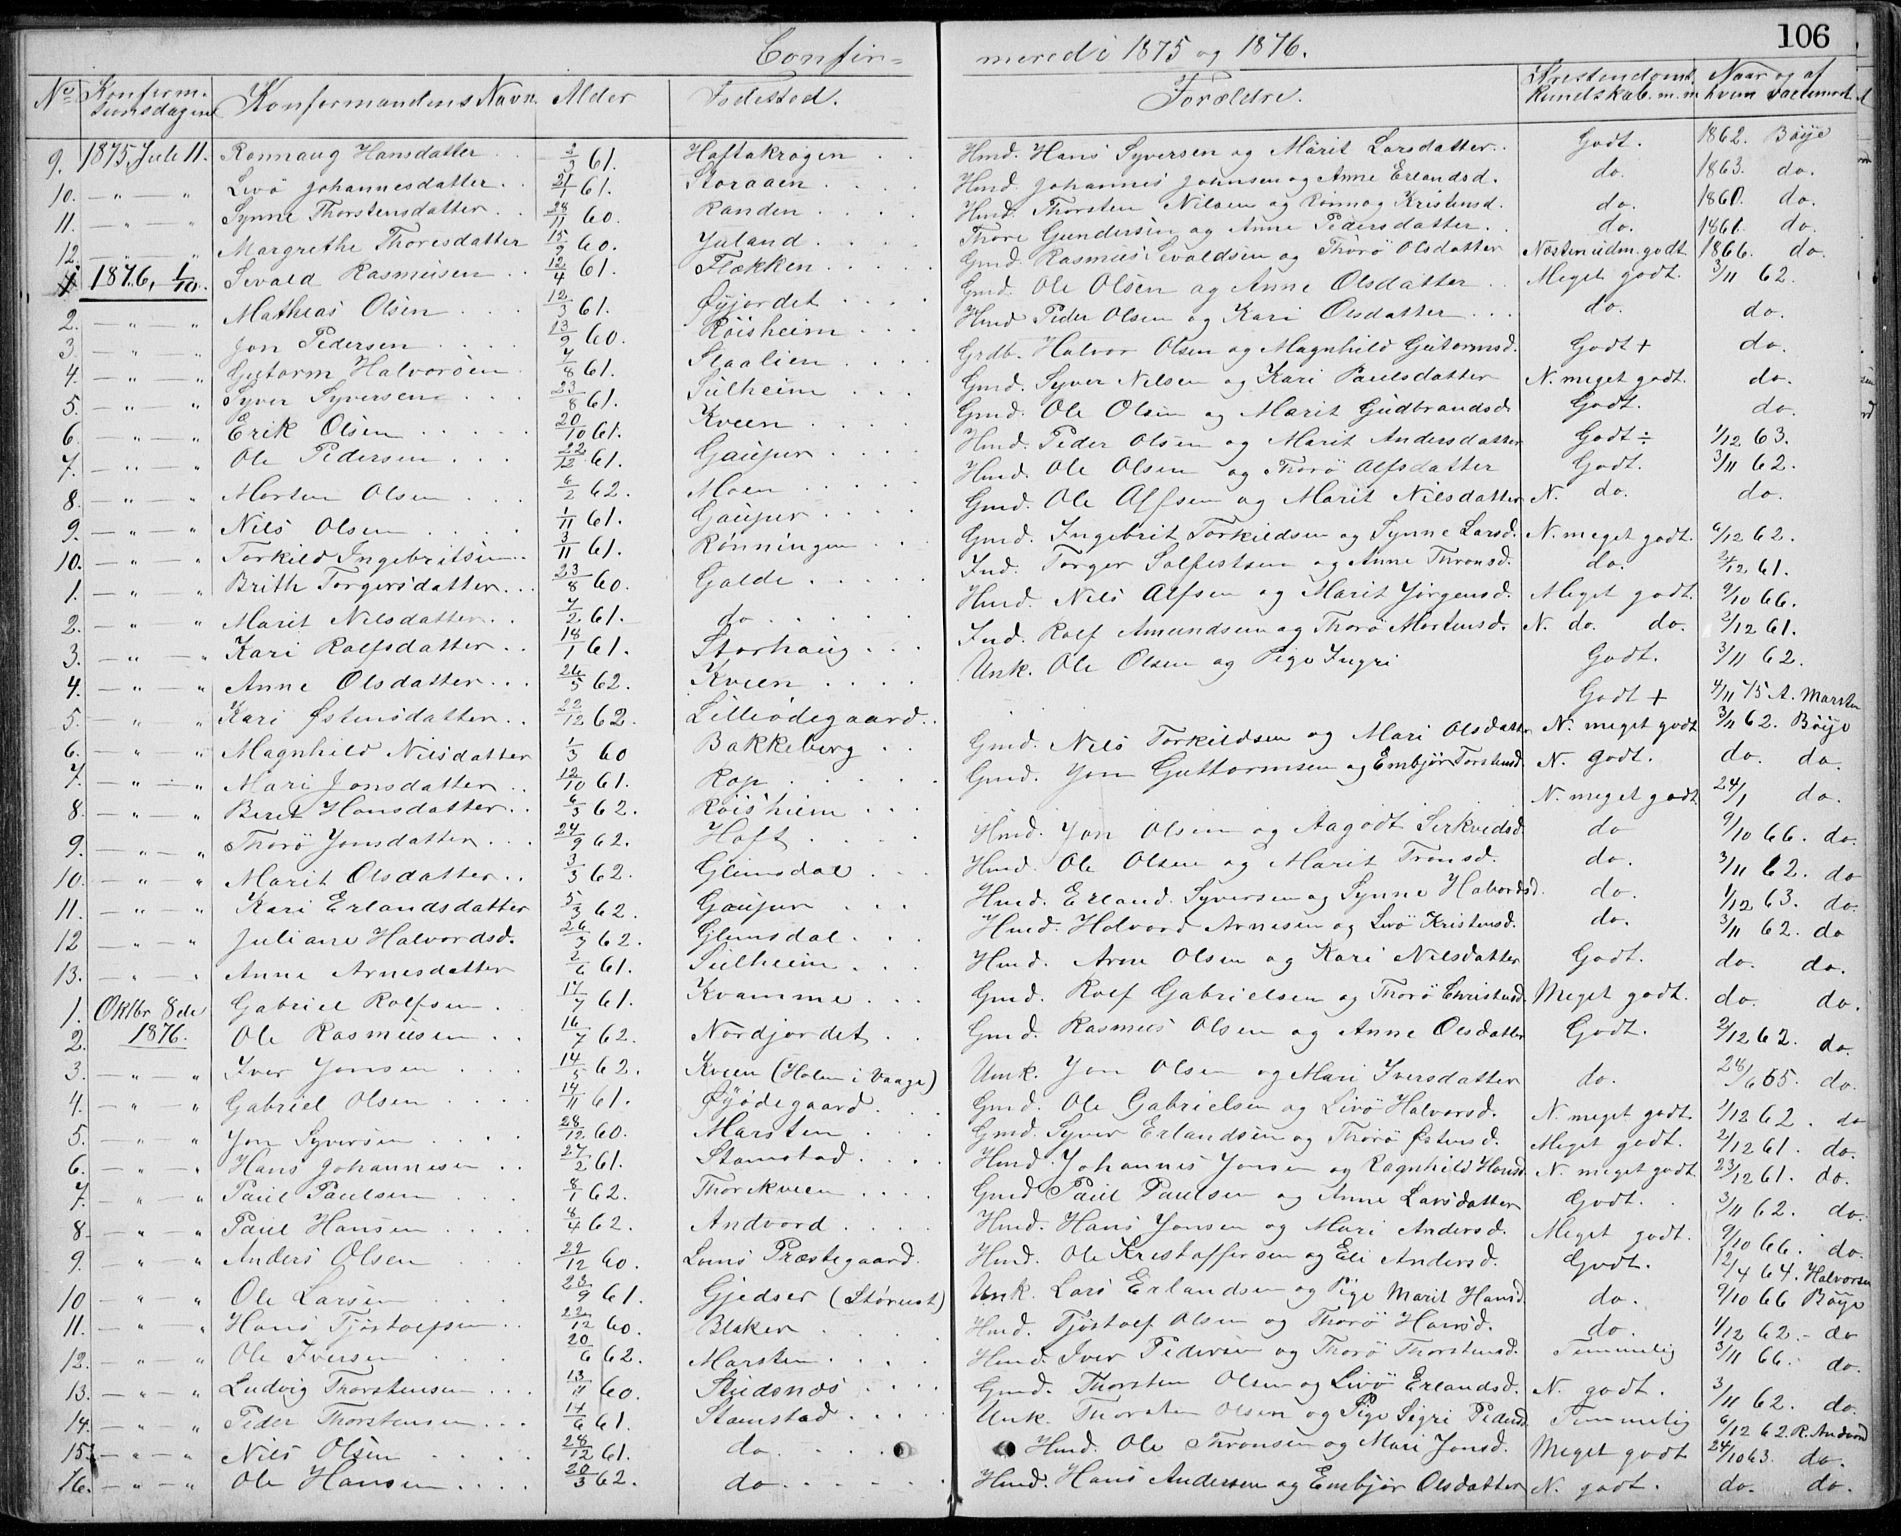 106
Confir= merede i 1875 og 1876.
No Konferm. tionsdagen Konfermandens Navn. Alder Fødested. Forældre. Kristendoms Kundskab. m.m Naar og af hvem vaccineret
9. 1875, Juli 11. Ronnaug Hansdatter 3/3 61. Haftakrogen Hmd. Hans Syversen og Marit Larsdatter. Godt. 1862. Böije
10. — " — " Livö Johannesdatter 21/1 61. Storaaen Hmd. Johannes Johnsen og Anne Erlandsd. do. 1863. do.
11. — " — " Synne Thorstensdatter 28/11 60. Randen Hmd. Thorsten Nilsen og Ronnog Kristensd. do. 1860. do.
12. — " — " Margrethe Thoresdatter 15/9 60. Jutand Thore Gundersen og Anne Pedersdatter. do. 1861. do.
1. 1876, 1/10. Sevald Rasmusen 12/4 61. Flækken Gmd. Rasmus Sevaldsen Thorö Olsdatter Næsten udm. godt 1866. do.
2. — " — " Mathias Olsen 12/3 61. Øyjordet Gmd. Ole Olsen og Anne Olsdatter Meget godt. 3/11 62.
3. — " — " Jon Pedersen 13/9 60. Röisheim Hmd Peder Olsen og Kari Olsdatter do. do.
4. — " — " Gutorm Halvorsen 4/8 61. Staalien Grdb. Halvor Olsen og Magnhild Gutormsd. Godt + do.
5. — " — " Syver Syversen 23/8 61. Sulheim Gmd. Syver Nilsen og Kari Paulsdatter N. meget godt. do.
6. — " — " Erik Olsen 20/10 61. Kveen Gmd. Ole Olsen og Marit Gudbrandsd. Godt. do.
7. — " — " Ole Pedersen 22/12 61. Gaupur Hmd. Peder Olsen og Marit Andersdatter Godt ÷ 1/12 63.
8. — " — " Morten Olsen 6/2 62. Moen Hmd. Ole Olsen og Thorö Alfsdatter Godt. 3/11 62.
9. — " — " Nils Olsen 1/11 61. Gaupur Gmd. Ole Alfsen og Marit Nilsdatter N. do. do.
10. — " — " Torkild Ingebritsen 3/11 61. Rönningen Gmd. Ingebrit Torkildsen og Synne Larsd. N. meget godt. 6/12 62.
1. — " — " Brith Torgersdatter 23/8 60. Galde Ind. Torger Solfestsen og Anne Thronsd. do. 24/12 61.
2. — " — " Marit Nilsdatter 7/2 61. do Hmd. Nils Alfsen og Marit Jörgensd. Meget godt. 9/10 66.
3. — " — " Kari Rolfsdatter 18/1 61. Storhaug Ind. Rolf Amundsen og Thorö Mortensd. N. do. do. 2/12 61.
4. — " — " Anne Olsdatter 26/5 62. Kveen Unk. Ole Olsen og Pige Ingri Godt. 3/11 62.
5. — " — " Kari Østensdatter 22/12 62. Lilleödegaard Godt + 4/11 75 A. Marsten
6. — " — " Magnhild Nilsdatter 1/3 60 Bakkeberg Gmd. Nils Torkildsen og Mari Olsdatter N. meget godt 3/11 62. Böije
7. — " — " Mari Jonsdatter 12/10 61. Rop Gmd. Jon Guttormsen og Embjör Torstensd. N. godt. do. do.
8. — " — " Berit Hansdatter 6/3 62. Röisheim N. meget godt 24/1 do.
9. — " — " Thorö Jonsdatter 24/9 62. Hoft Hmd. Jon Olsen og Aagodt Sirkvidsd. do 9/10 66. do.
10. — " — " Marit Olsdatter 3/3 62. Glimsdal Hmd. Ole Olsen og Marit Tronsd. do. 3/11 62. do
11. — " — " Kari Erlandsdatter 5/3 62. Gaupur Hmd. Erland Syversen og Synne Halvordsd. do. 1/12 63. do.
12 — " — " Juliane Halvordsd. 26/3 62. Glimsdal Hmd. Halvord Arnesen og Livö Kristensd. do. 3/11 62. do
13. — " — " Anne Arnesdatter 2/6 61. Sulheim Hmd. Arne Olsen og Kari Nilsdatter Godt. do. do.
1. Oktbr 8de Gabriel Rolfsen 17/7 61. Kvamme Gmd. Rolf Gabrielsen og Thorö Christensd. Meget godt. do. do.
2. 1876. Ole Rasmusen 16/7 62. Nordjordet Gmd. Rasmus Olsen og Anne Olsdatter Godt. 2/12 62. do.
3. — " — " Iver Jonsen 14/5 62. Kveen (Holen i Vaage) Unk. Jon Olsen og Mari Iversdatter do. 28/6 65. do.
4. — " — " Gabriel Olsen 14/11 61. Øyödegaard Gmd. Ole Gabrielsen og Livö Halvorsd. N. meget godt. 1/12 62. do
5. — " — " Jon Syversen 28/12 60. Marsten Gmd. Syver Erlandsen og Thorö Østensd. Meget godt. 2/12 61. do.
6. — " — " Hans Johannesen 27/2 61. Stamstad Hmd. Johannes Jonsen og Ragnhild Hansd. N. meget godt 23/12 61. do.
7. — " — " Paul Paulsen 8/1 62. Thorekveen Gmd. Paul Paulsen og Anne Larsdatter Godt. 3/11 62. do.
8. — " — " Paul Hansen 8/4 62. Andvord Hmd. Hans Jonsen og Mari Andersd. Meget godt. 9/10 66. do.
9. — " — " Anders Olsen 22/12 60. Loms Præstegaard. Hmd. Ole Kristoffersen og Eli Andersd. Godt. 12/4 64. Halvorsen
10 — " — " Ole Larsen 23/9 61. Gjedser (Störust) Unk. Lars Erlandsen og Pige Marit Hansd. do. 9/10 66 Böije
11. — " — " Hans Tjöstolfsen 22/12 60. Blaker Hmd. Tjöstolf Olsen og Thorö Hansd. do. 1/12 62. do
12. — " — " Ole Iversen 20/6 62. Marsten Hmd. Iver Pedersen og Thorö Thorstensd. Temmelig 3/11 66. do.
13. — " — " Ludvig Thorstensen 13/4 60. Studsnos Gmd. Thorsten Olsen og Livö Erlandsd. N. godt. 3/11 62. do.
14. — " — " Peder Thorstensen 14/6 61. Stamstad Unk. Thorsten Olsen og Pige Sigri Pedersd. Temmelig 6/12 62. R. Andvord
15. — " — " Nils Olsen 28/12 61. do Hmd. Ole Thronsen og Mari Jonsd. Meget godt 24/10 63. do.
16. — " — " Ole Hansen 20/3 62. do Hmd. Hans Andersen og Embjör Olsdatter N. godt. do. do.